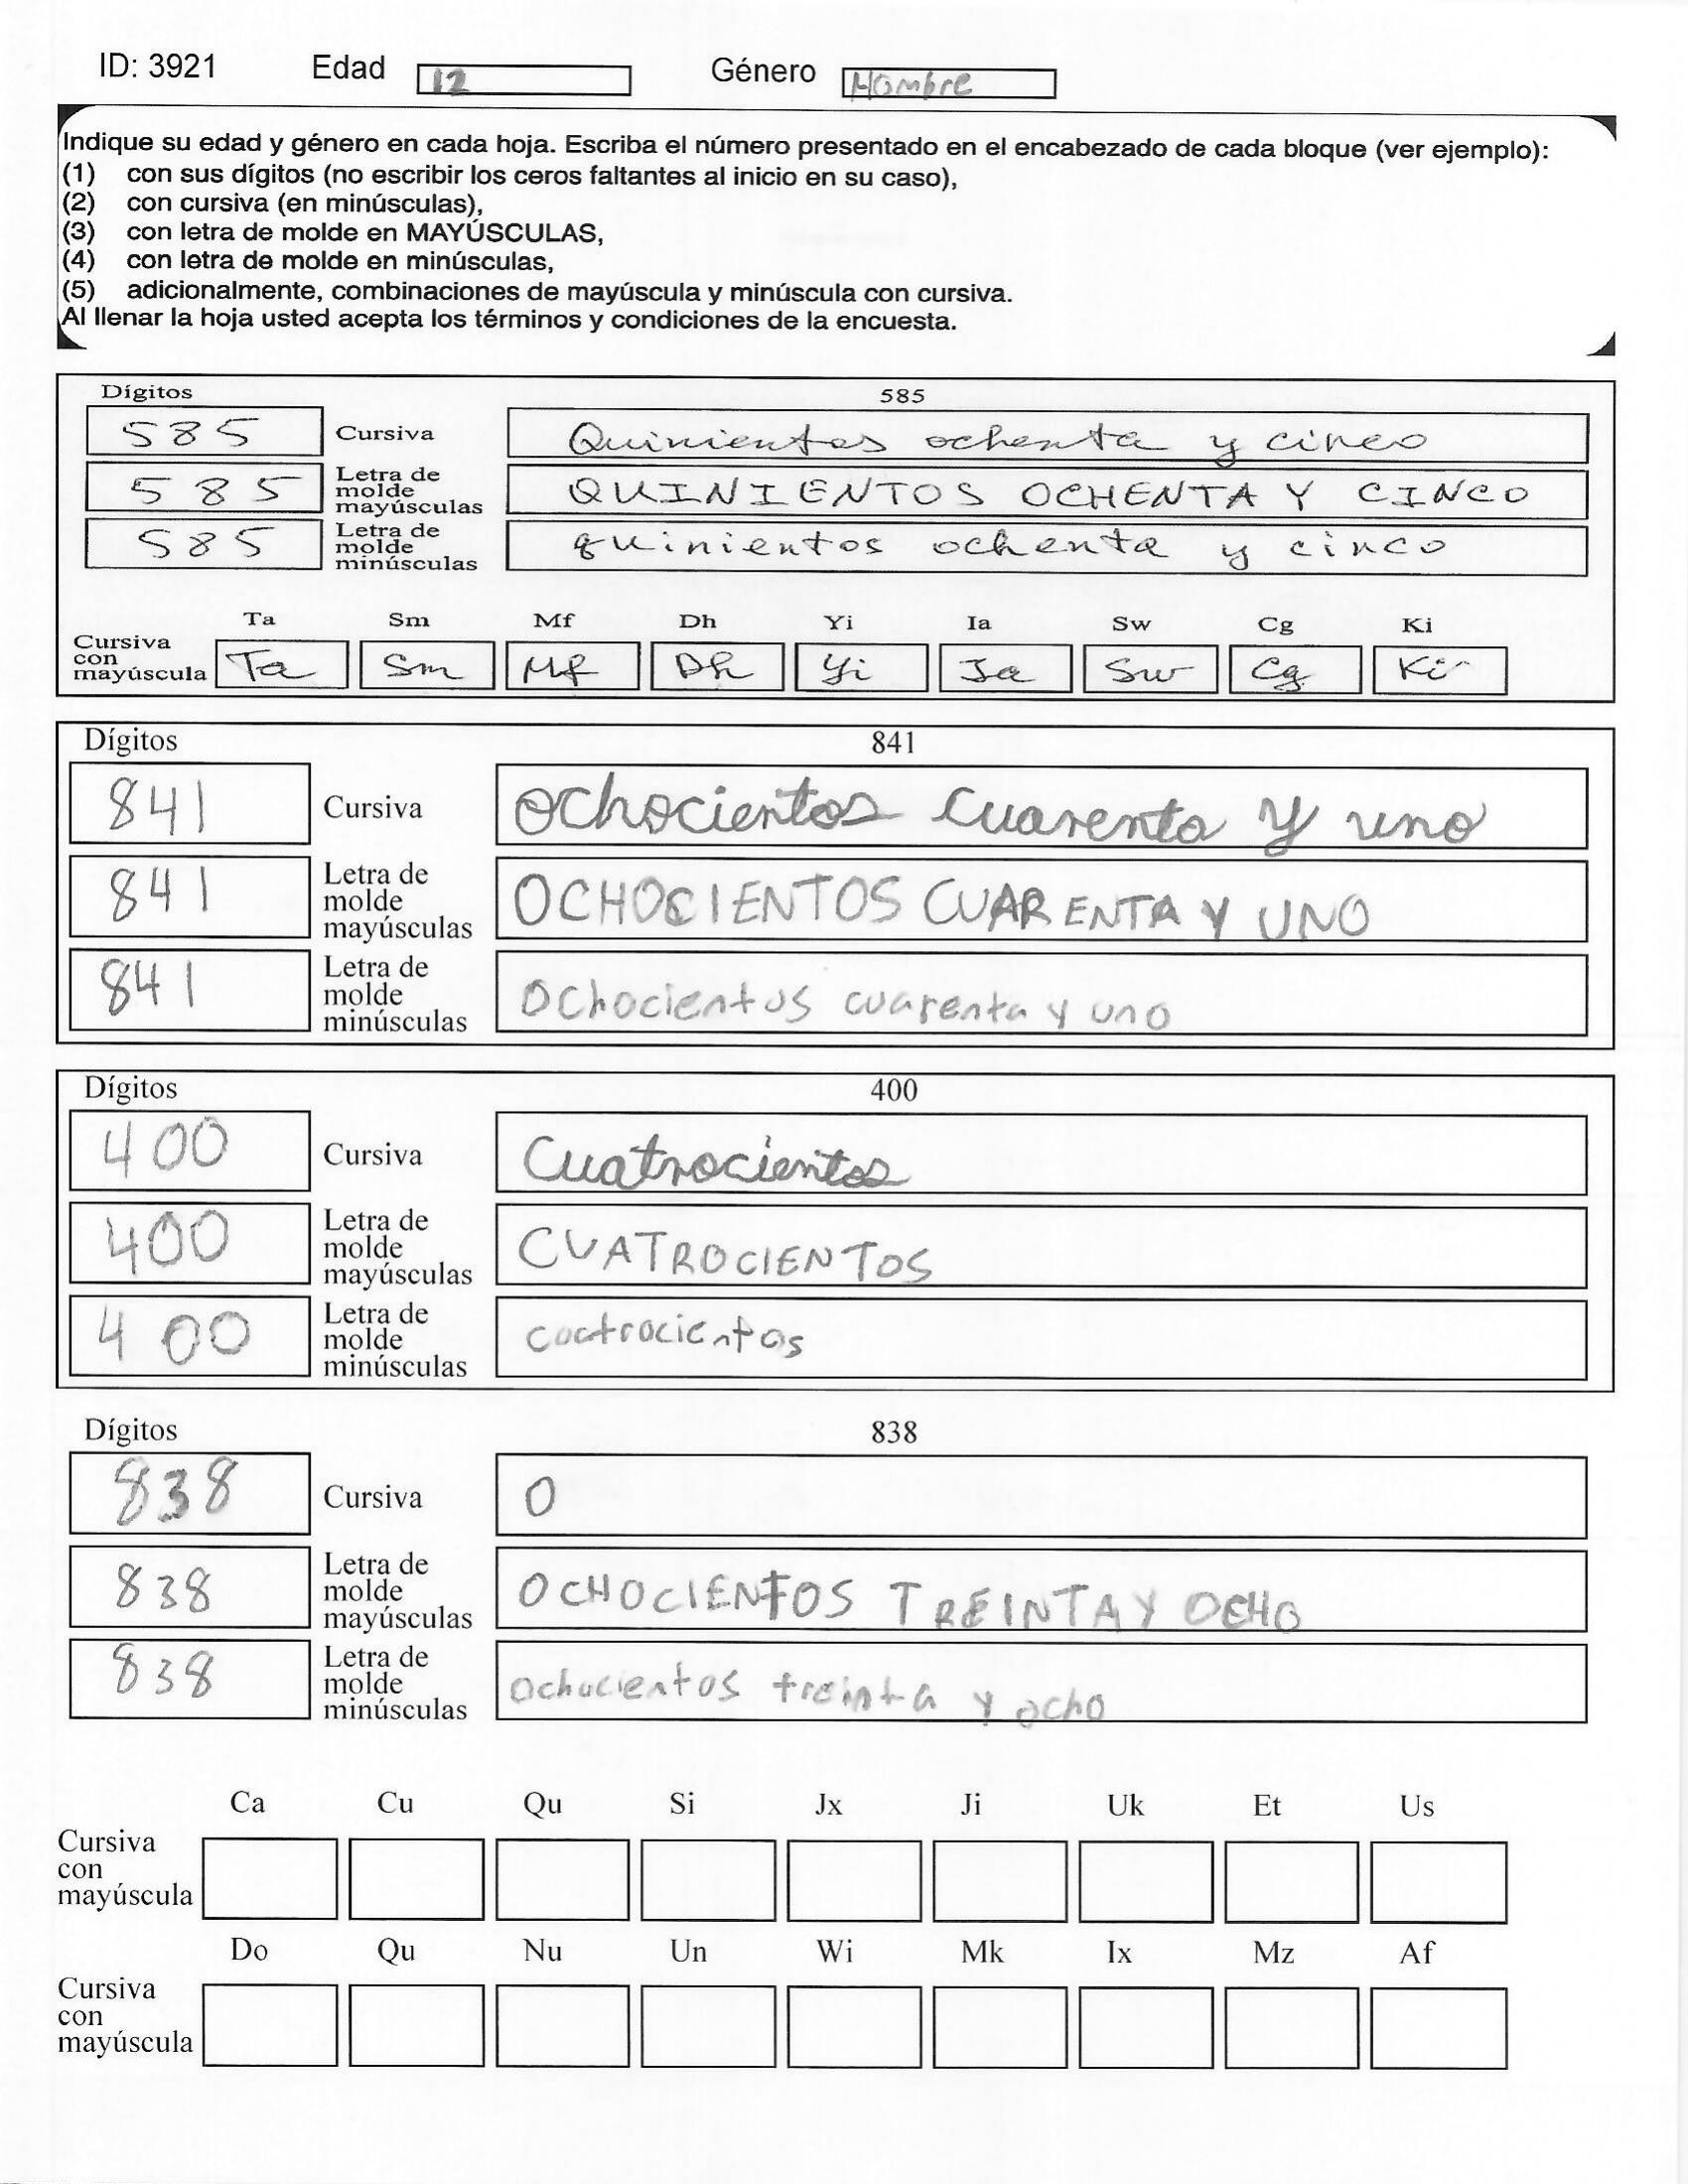 ID: 3921 Edad 12 Género Hombre
Indique su edad y género en cada hoja. Escriba el número presentado en el encabezado de cada bloque (ver ejemplo):
(1) con sus dígitos (no escribir los ceros faltantes al inicio en su caso),
(2) con cursiva (en minúsculas),
(3) con letra de molde en MAYÚSCULAS,
(4) con letra de molde en minúsculas,
(5) adicionalmente, combinaciones de mayúscula y minúscula con cursiva.
Al llenar la hoja usted acepta los términos y condiciones de la encuesta.
Dígitos 585
585 Cursiva Quinientos ochenta y cinco
585 Letra de molde mayúsculas QUINIENTOS OCHENTA Y CINCO
585 Letra de molde minúsculas quinientos ochenta y cinco
Ta Sm Mf Dh Yi Ia Sw Cg Ki
Cursiva con mayúscula Ta Sm Mf Dh Yi Ia Sw Cg Ki
Dígitos 841
841 Cursiva Ochocientos cuarenta y uno
841 Letra de molde mayúsculas OCHOCIENTOS CUARENTA Y UNO
841 Letra de molde minúsculas Ochocientos cuarenta y uno
Dígitos 400
400 Cursiva Cuatrocientos
400 Letra de molde mayúsculas CUATROCIENTOS
400 Letra de molde minúsculas cuatrocientos
Dígitos 838
838 Cursiva O
838 Letra de molde mayúsculas OCHOCIENTOS TREINTA Y OCHO
838 Letra de molde minúsculas Ochocientos treinta y ocho
Ca Cu Qu Si Jx Ji Uk Et Us
Cursiva con mayúscula
Do Qu Nu Un Wi Mk Ix Mz Af
Cursiva con mayúscula